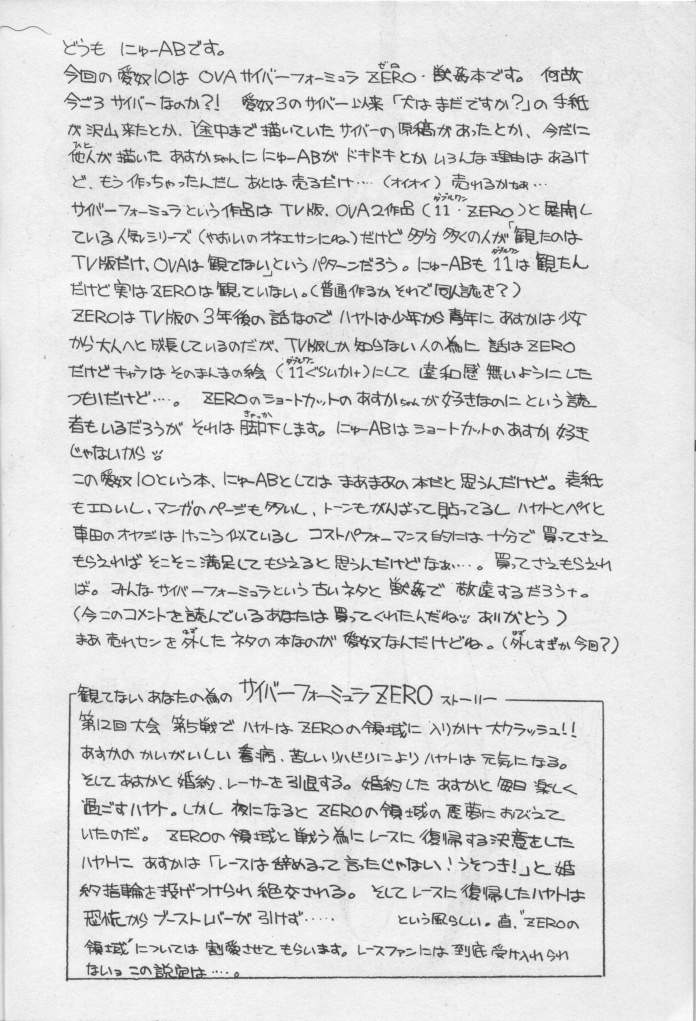 どうも にゅーABです。
今回の愛奴10は OVAサイバーフォーミュラ ZERO・獣姦本です。 何故
今ごろサイバーなのか?! 愛奴3のサイバー以来「犬はまだですか?」の手紙
が沢山来たとか、途中まで描いていたサイバーの原稿があったとか、今だに
他人が描いた あすかちゃんに にゅーABが ドキドキとか いろんな理由はあるけ
ど、もう作っちゃったんだし あとは売るだけ‥‥ (オイオイ) 売れるかなぁ…
サイバーフォーミュラという作品は TV版、OVA2作品(11・ZERO)と展開し
ている人気シリーズ(やおいのオネエサンにね)だけど 多分 多くの人が「観たのは
TV版だけ、OVAは観てない」というパターンだろう。にゅーABも 11は観たん
だけど実はZEROは観ていない。(普通作るか それで同人誌を?)
ZEROはTV版の3年後の話なので ハヤトは少年から青年に あすかは少女
から大人へと成長しているのだが、TV版しか知らない人の為に 話はZERO
だけどキャラはそのまんまの絵(11ぐらいか)にして 違和感無いようにした
つもりだけど‥‥。 ZEROのショートカットのあすかちゃんが好きなのに という読
者もいるだろうが それは却下します。にゅーABはショートカットのあすか 好き
じゃないから
この愛奴10という本、にゅーABとしては まあまあの本だと思うんだけど。表紙
もエロいし、マンガのページも多いし、トーンもがんばって貼ってるし ハヤトとペイと
車田のオヤジはけっこう似ているし コストパフォーマンス的には十分で 買ってさえ
もらえれば そこそこ満足してもらえると思うんだけどなぁ‥‥。 買ってさえもらえれ
ば。 みんなサイバーフォーミュラという古いネタと 獣姦で 敬遠するだろナ。
(今このコメントを読んでいるあなたは買ってくれたんだね ありがとう)
まあ 売れセンを外した ネタの本なのが 愛奴なんだけどね。(外しすぎか 今回?)
観てないあなたの為の サイバーフォーミュラZERO ストーリー
第12回大会 第5戦で ハヤトは ZEROの領域に 入りかけ 大クラッシュ!!
あすかのかいがいしい 看病、苦しいリハビリにより ハヤトは 元気になる。
そして あすかと婚約、レーサーを引退する。 婚約した あすかと毎日 楽しく
過ごすハヤト。しかし 夜になると ZEROの領域の悪夢に おびえて
いたのだ。 ZEROの領域と戦う為にレースに 復帰する決意をした
ハヤトに あすかは「レースは辞めるって言ったじゃない!うそつき!」と婚
約指輪を投げつけられ絶交される。 そしてレースに 復帰したハヤトは
恐怖から ブーストレバーが引けず‥‥‥ という風らしい。直、“ZEROの
領域”については 割愛させてもらいます。レースファンには 到底 受け入れられ
ないョ この設定は‥‥。